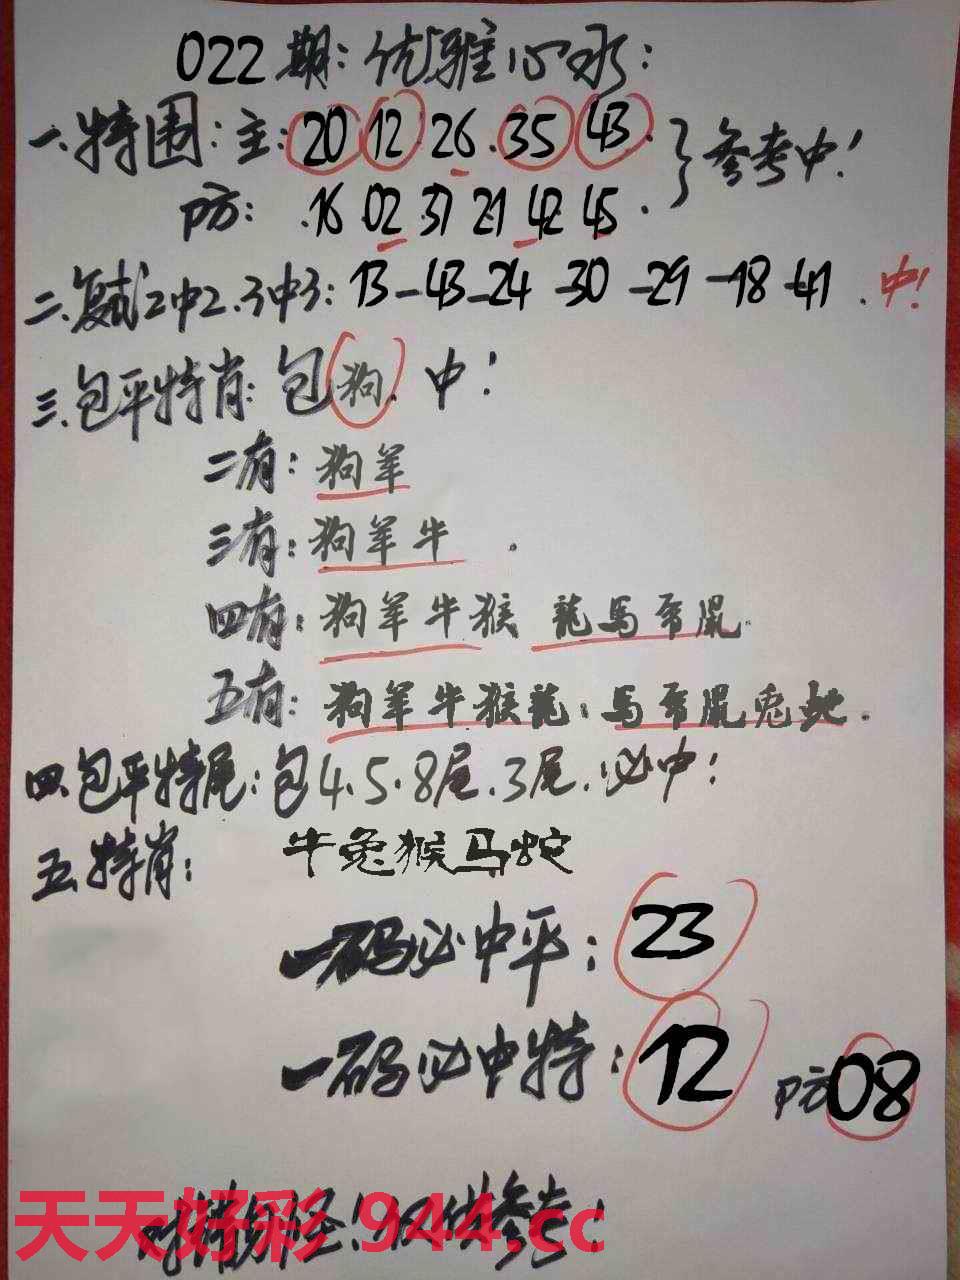 022期:优雅心水:
一.特围:主:20 12 26.35 43. }参考中!
防: .16 02 37 21 42 45.
二.复式2中2.3中3:13-43-24-30-29-18-41.中!
三.包平特肖:包狗.中!
二有:狗羊
三有:狗羊牛.
四有:狗羊牛猴 龍馬兔鼠.
五有:狗羊牛猴龍:馬兔鼠兔蛇.
四.包平特尾:包4.5.8尾.3尾.必中!
五.特肖: 牛兔猴马蛇
一码必中平:23
一码必中特:12 防08
对错勿怪!仅供参考!
天天好彩 944.cc